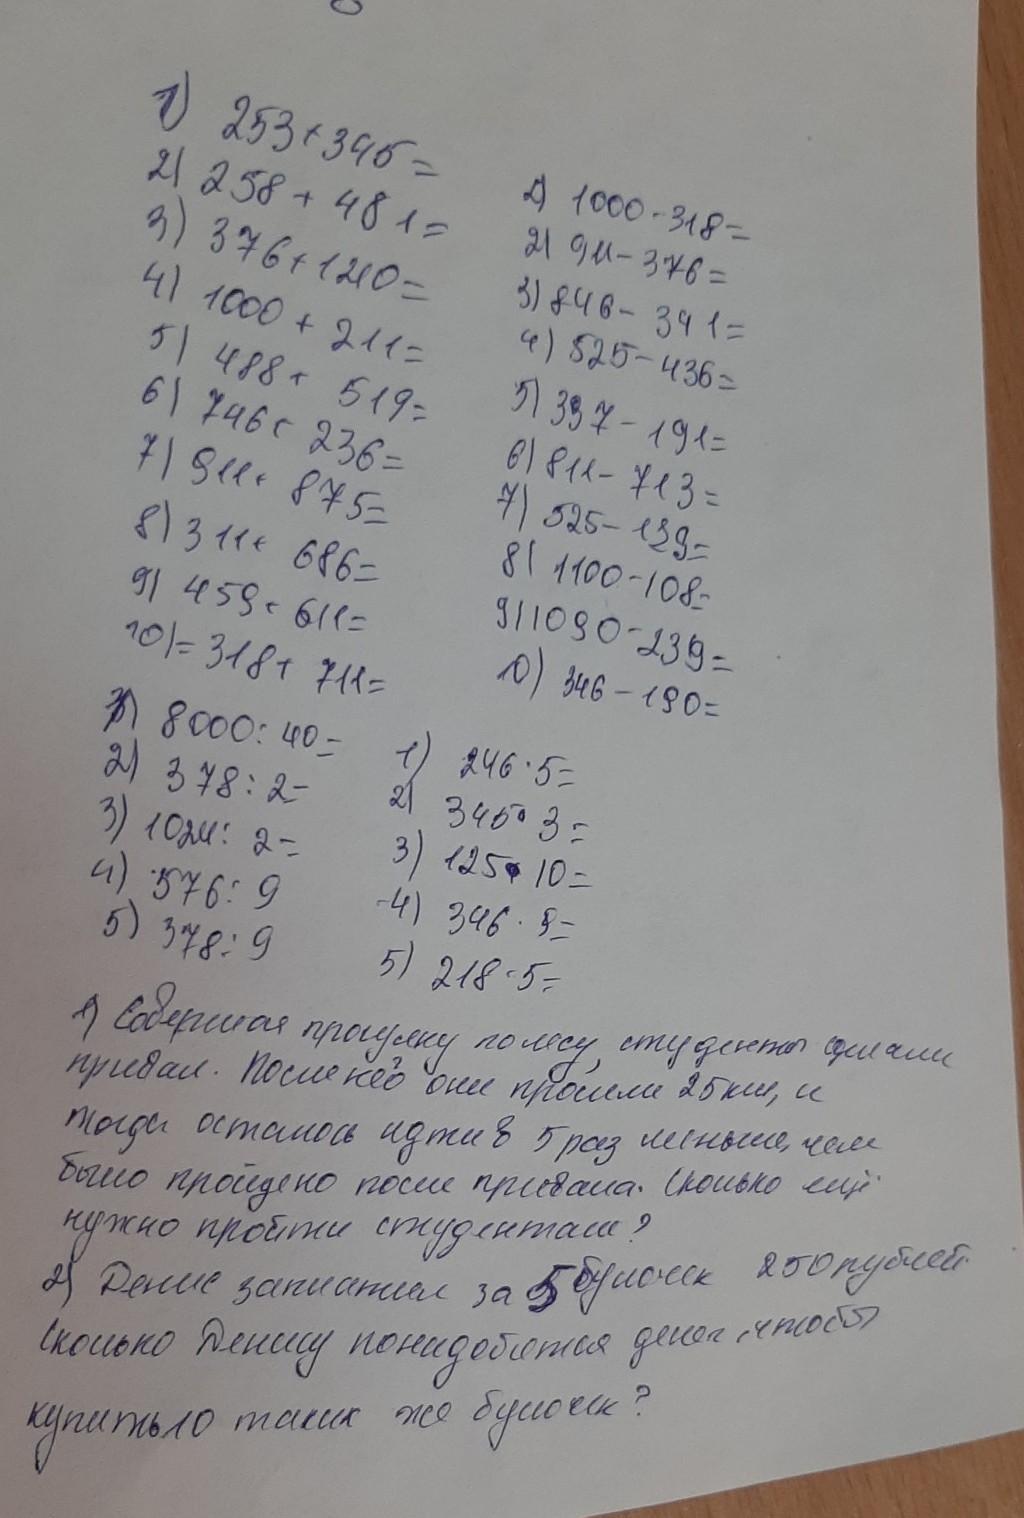 1) 253+345=
2) 258+481=
3) 376+1210=
4) 1000+211=
5) 488+519=
6) 746+236=
7) 911+875=
8) 311+686=
9) 459+611=
10)=318+711=
1) 1000-318=
2) 911-376=
3) 846-341=
4) 525-436=
5) 397-191=
6) 811-713=
7) 525-139=
8) 1100-108=
9) 1090-239=
10) 346-190=
1) 8000:40=
2) 378:2=
3) 1024:2=
4) 576:9
5) 378:9
1) 246·5=
2) 345·3=
3) 125·10=
4) 346·9=
5) 218·5=
1) Совершая прогулку по лесу, студенты сделали
привал. После него они прошли 25км, и
тогда осталось идти в 5 раз меньше, чем
было пройдено после привала. Сколько ещё
нужно пройти студентам?
2) Денис заплатил за 5 булочек 250 рублей.
Сколько Денису понадобится денег, чтобы
купить 10 таких же булочек?